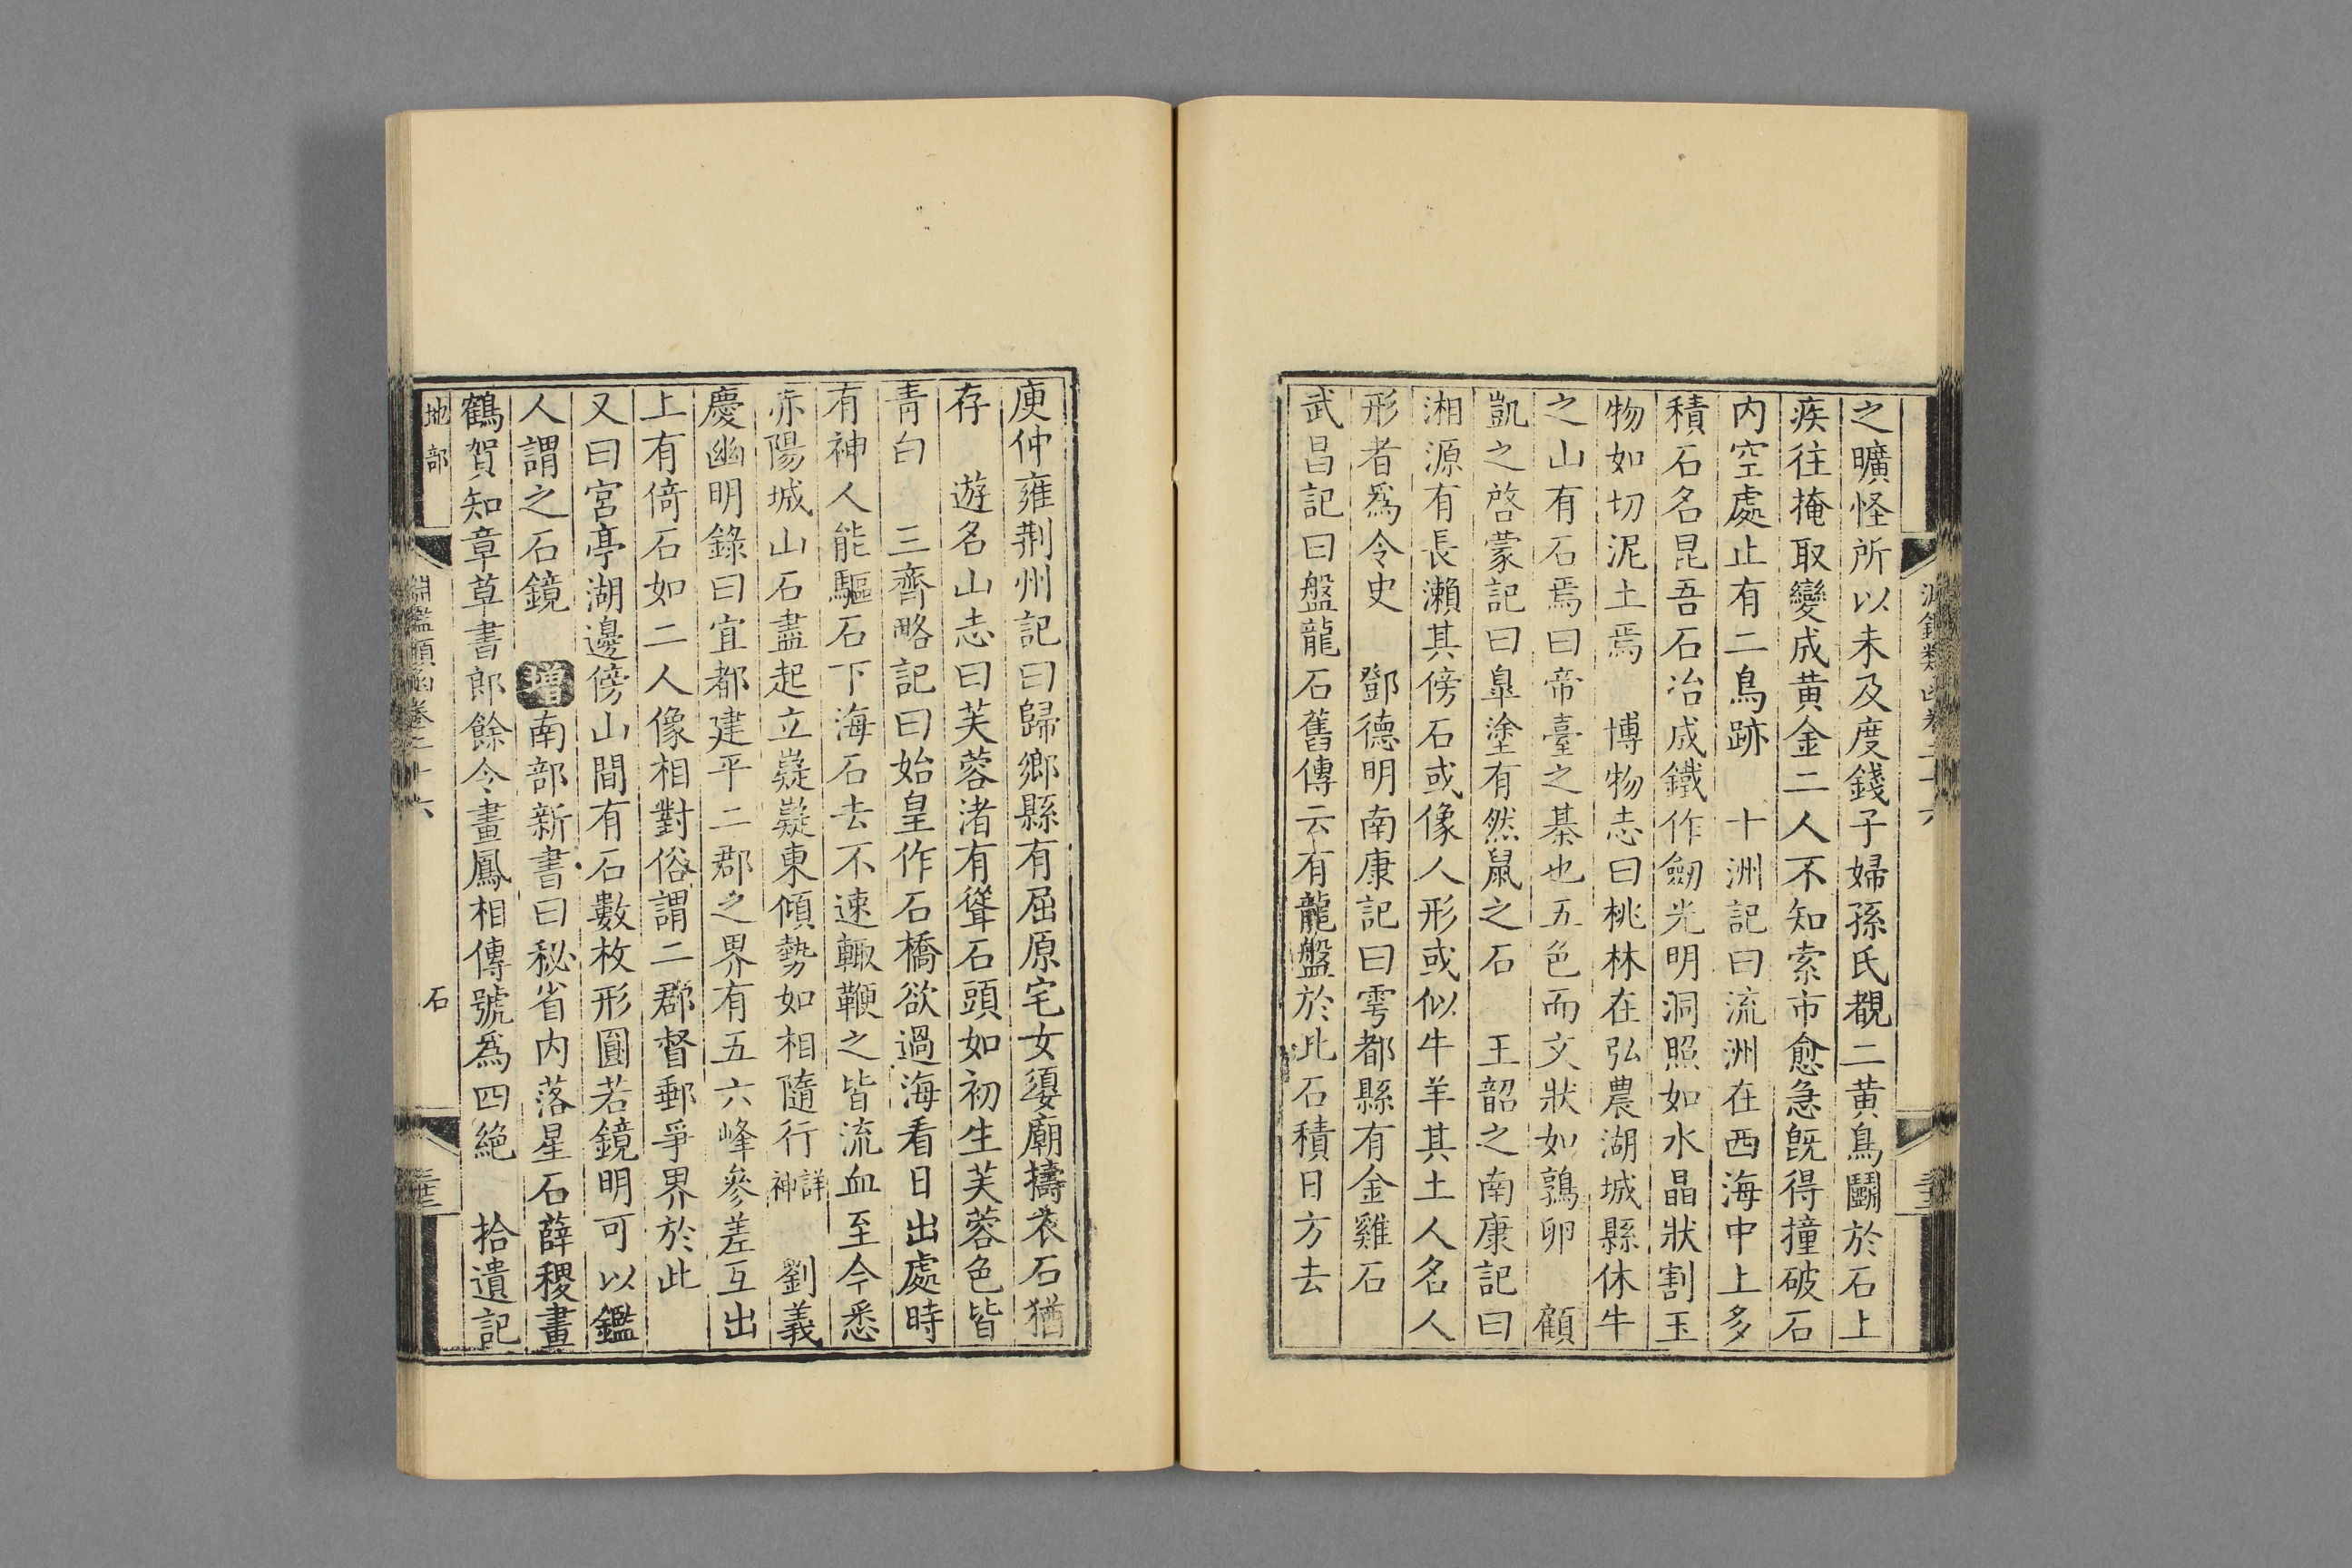 之曠怪所以未及度錢子婦孫氏覩二黄鳥鬭於石上
疾往掩取變成黄金二人不知索市愈急旣得撞破石
内空處止有二鳥跡　十洲記曰流洲在西海中上多
積石名昆吾石冶成鐵作劒光明洞照如水晶狀割玉
物如切泥土焉　博物志曰桃林在弘農湖城縣休牛
之山有石焉曰帝臺之棊也五色而文狀如鶉卵　顧
凱之啓蒙記曰臯塗有然鼠之石　王韶之南康記曰
湘源有長瀨其傍石或像人形或似牛羊其土人名人
形者爲令史　鄧德明南康記曰雩都縣有金雞石
武昌記曰盤龍石舊傳云有龍盤於此石積日方去
庾仲雍荆州記曰歸鄉縣有屈原宅女嬃廟擣衣石猶
存　遊名山志曰芙蓉渚有聳石頭如初生芙蓉色皆
青白　三齊略記曰始皇作石橋欲過海看日出處時
有神人能驅石下海石去不速輙鞭之皆流血至今悉
赤陽城山石盡起立嶷嶷東傾勢如相隨行詳神　劉義
慶幽明錄曰宜都建平二郡之界有五六峰參差互出
上有倚石如二人像相對俗謂二郡督郵爭界於此
又曰宮亭湖邊傍山間有石數枚形圓若鏡明可以鑑
人謂之石鏡　增南部新書曰秘省内落星石薛稷畫
鶴賀知章草書郎餘令畫鳳相傳號爲四絶　拾遺記
地部
淵鑑類函卷二十六
石